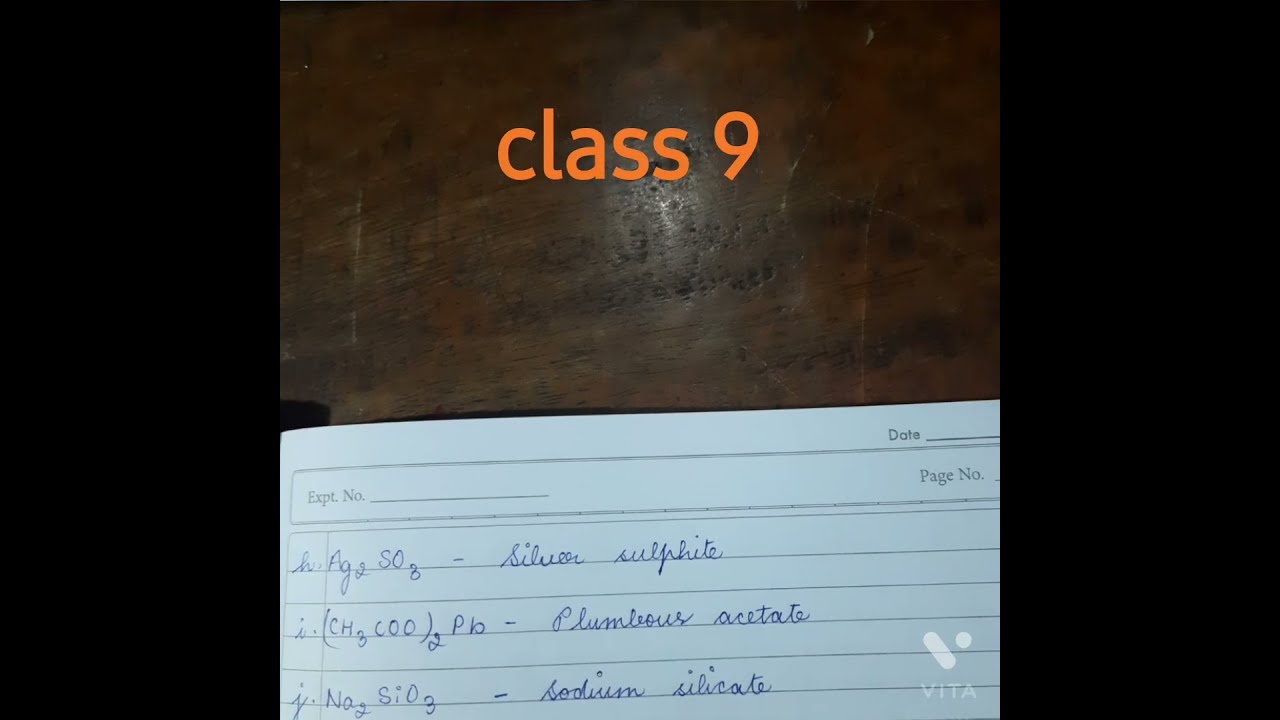 class 9
Date
Expt. No.
Page No.
h. Ag₂SO₃ - Silver sulphite
i. (CH₃COO)₂Pb - Plumbous acetate
j. Na₂SiO₃ - Sodium silicate
VITA